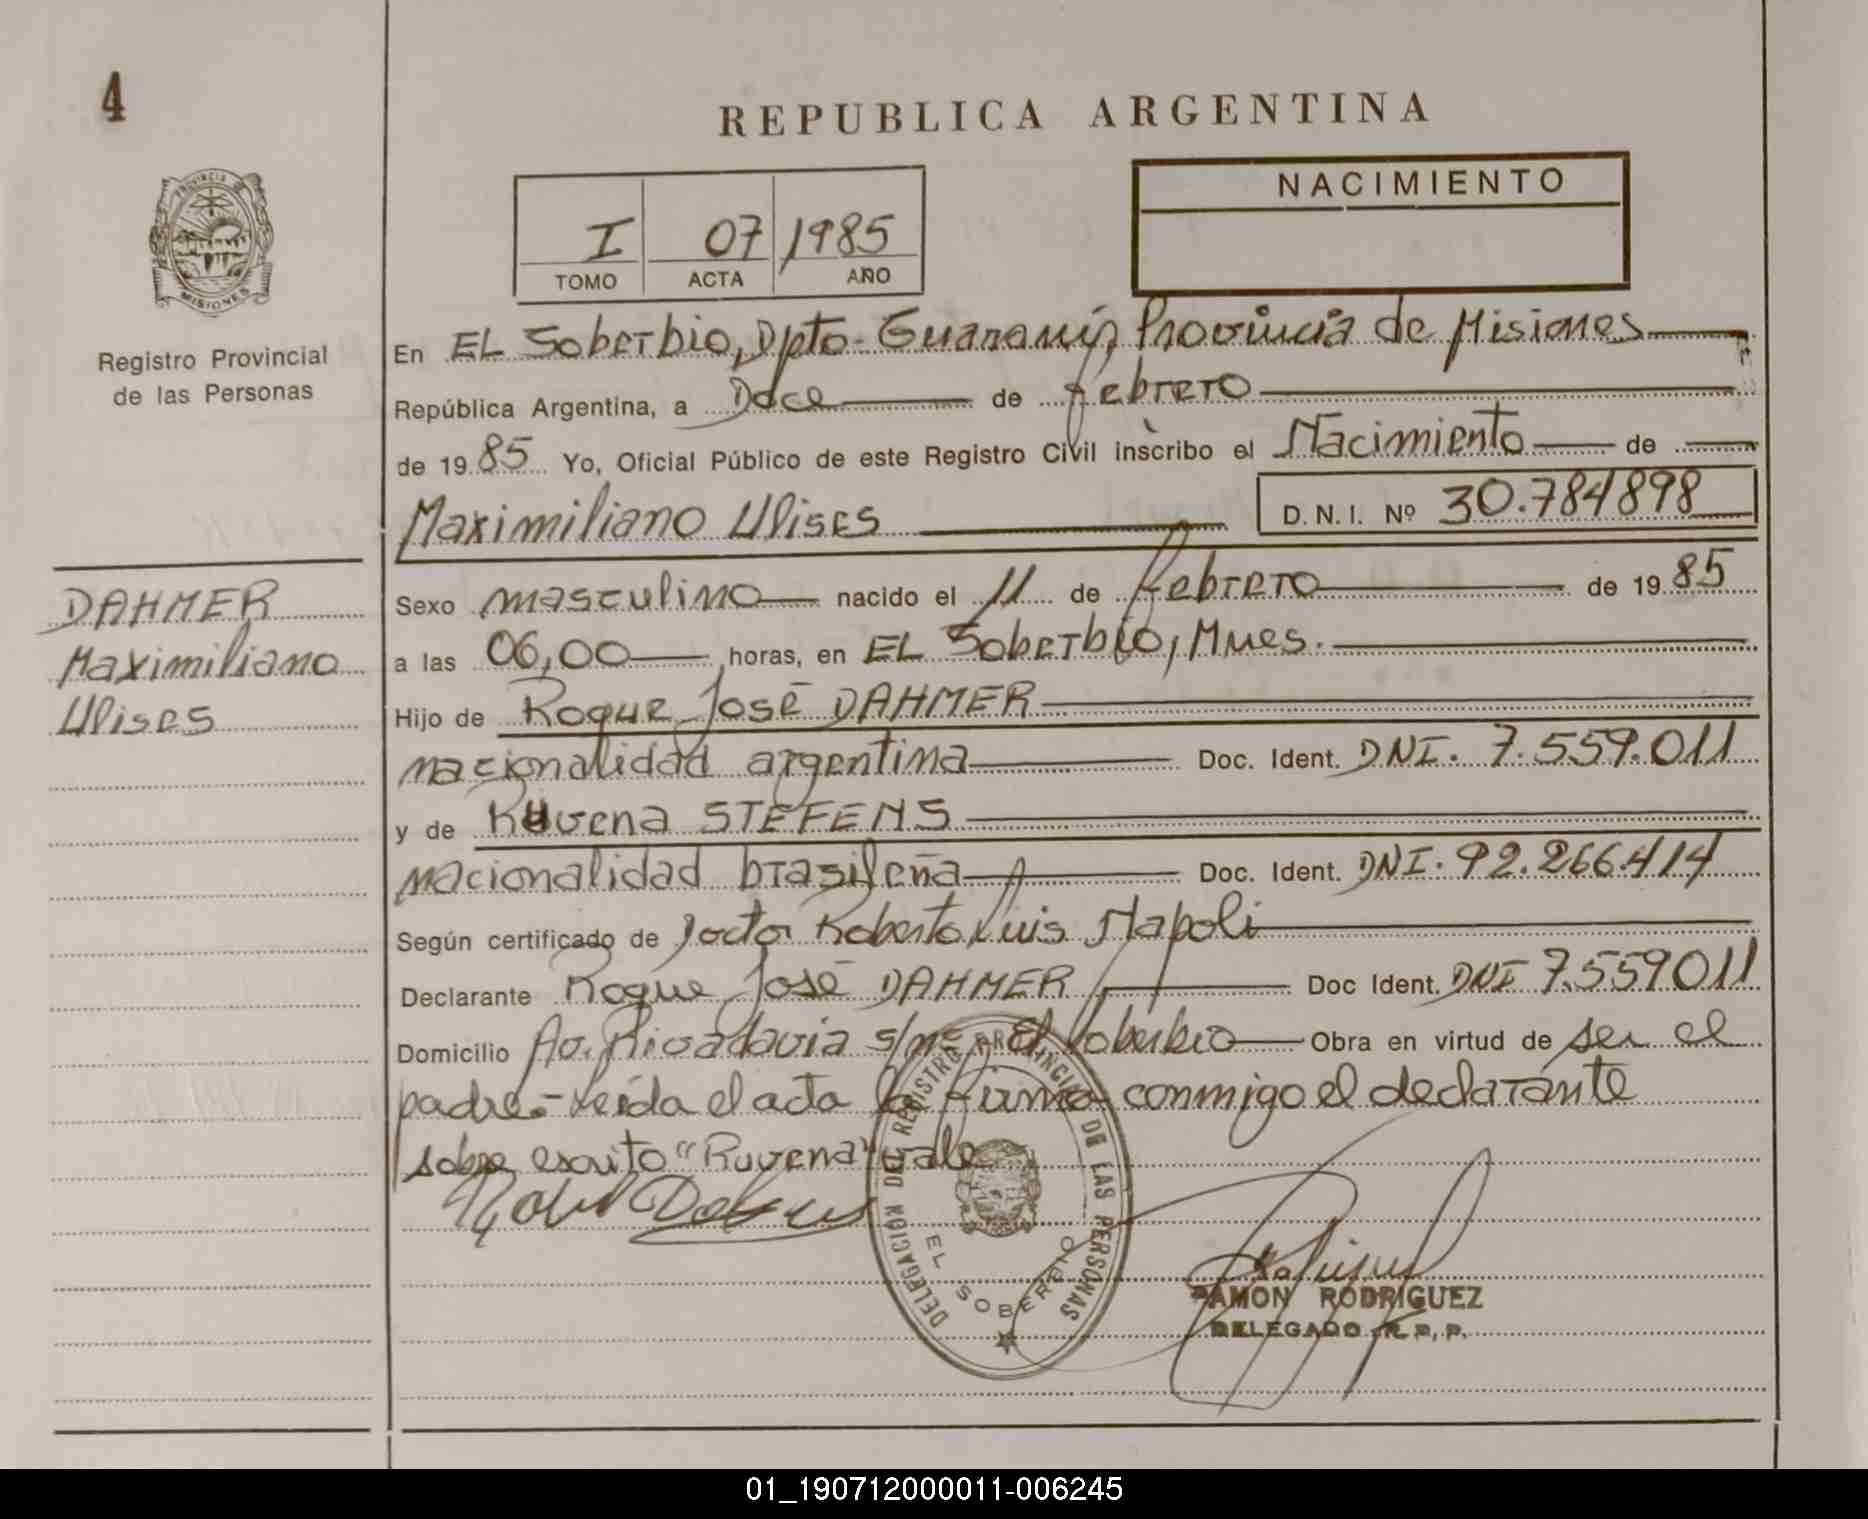 4
REPUBLICA ARGENTINA
PROVINCIA
MISIONES
Registro Provincial
de las Personas
I 07 1985
TOMO ACTA AÑO
NACIMIENTO
En EL Soberbio, Dpto. Guaraní, Provincia de Misiones
República Argentina, a Doce de febrero
de 1985 Yo, Oficial Público de este Registro Civil inscribo el Nacimiento de
Maximiliano Ulises D.N.I. Nº 30.784898
DAHMER
Maximiliano
Ulises
Sexo masculino nacido el 11 de febrero de 1985
a las 06,00 horas, en EL Soberbio, Mnes.
Hijo de Roque José DAHMER
nacionalidad argentina Doc. Ident. DNI. 7.559.011
y de Ruvena STEFENS
nacionalidad brasileña Doc. Ident. DNI. 92.266.414
Según certificado de Doctor Roberto Luis Napoli
Declarante Roque José DAHMER Doc Ident. DNI 7.559011
Domicilio Av. Rivadavia s/nº, El Soberbio Obra en virtud de ser el
padre.- Leída el acta la firma conmigo el declarante
sobre escrito "Ruvena" vale
DELEGACION DE REGISTRO PROVINCIAL DE LAS PERSONAS
EL SOBERBIO
RAMON RODRIGUEZ
DELEGADO R.P.P.
01_190712000011-006245